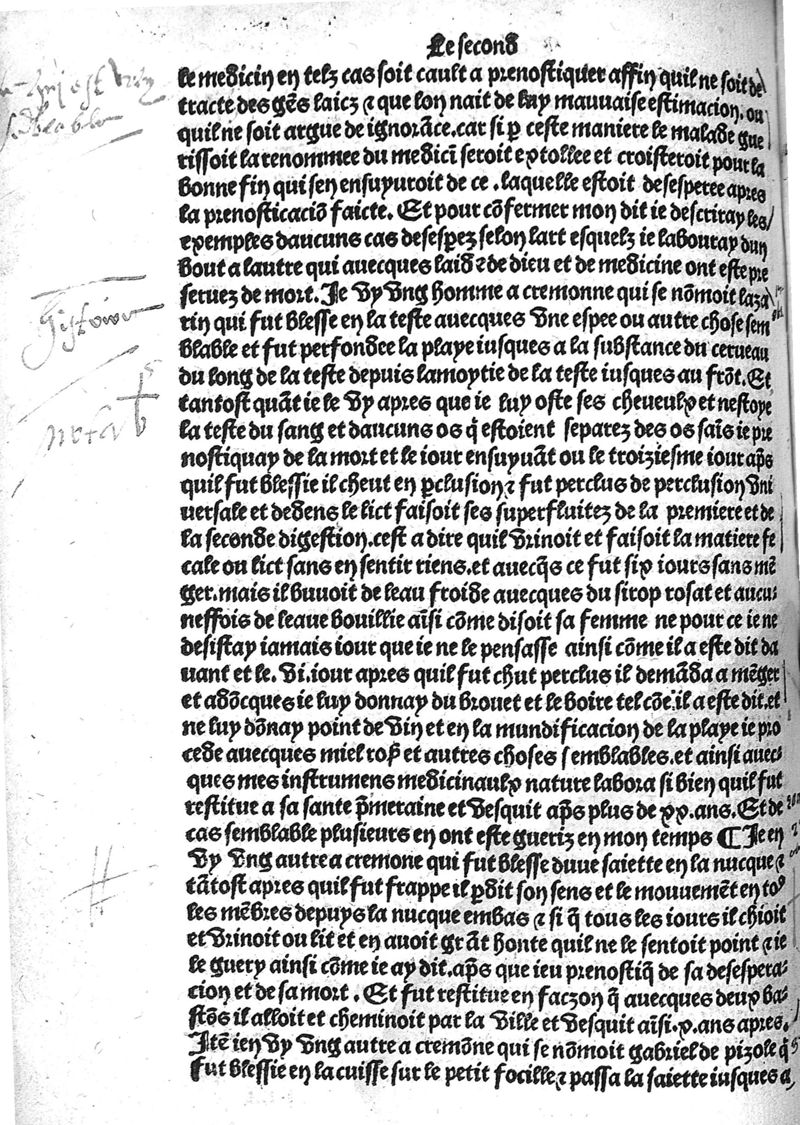 Le second
le medicin en telz cas soit cault a prenostiquer affin quil ne soit de
tracte des gẽs laicz ⁊ que lon nait de luy mauuaise estimacion, ou
quil ne soit argue de ignorãce.car si ꝑ ceste maniere le malade gue
rissoit la renommee du medicĩ seroit extollee et croisteroit pour la
bonne fin qui sen ensuyuroit de ce . laquelle estoit desesperee apres
la prenosticaciõ faicte. Et pour cõfermer mon dit ie descriray les
exemples daucuns cas desesꝑez selon lart esquelz ie labouray dun
bout a lautre qui auecques laide de dieu et de medicine ont este pre
seruez de mort. Je vy vng homme a cremonne qui se nõmoit laza
rin qui fut blesse en la teste auecques vne espee ou autre chose sem
blable et fut perfondee la playe iusques a la substance du cerueau
du long de la teste depuis lamoytie de la teste iusques au frõt. Et
tantost quãt ie le vy apres que ie luy oste ses cheueulx et nestoye
la teste du sang et daucuns os q̃ estoient separez des os saĩs ie pre
nostiquay de la mort et le iour ensuyuãt ou le troiziesme iour ap̃s
quil fut blessie il cheut en ꝑclusion ⁊ fut perclus de perclusion vni
uersale et dedens le lict faisoit ses superfluitez de la premiere et de
la seconde digestion.cest a dire quil vrinoit et faisoit la matiere fe
cale ou lict sans en sentir riens.et auecq̃s ce fut six iours sans mẽ
ger.mais il buuoit de leau froide auecques du sirop rosat et aucu
neffois de leaue bouillie aĩsi cõme disoit sa femme ne pour ce ie ne
desistay iamais iour que ie ne le pensasse ainsi cõme il a este dit da
uant et le. vi.iour apres quil fut chut perclus il demãda a mẽger
et adõcques ie luy donnay du brouet et le boire tel cõe il a este dit.et
ne luy dõnay point de vin et en la mundificacion de la playe ie pro
cede auecques miel ros̃ et autres choses semblables.et ainsi auec
ques mes instrumens medicinaulx nature labora si bien quil fut
restitue a sa sante p̃meraine et vesquit ap̃s plus de xx.ans. Et de
cas semblable plusieurs en ont este gueriz en mon temps ¶ Je en
vy vng autre a cremone qui fut blesse duue saiette en la nucque ⁊
tãtost apres quil fut frappe il ꝑdit son sens et le mouuemẽt en toꝰ
les mẽbres depuys la nucque embas ⁊ si q̃ tous les iours il chioit
et vrinoit ou lit et en auoit grãt honte quil ne le sentoit point ⁊ ie
le guery ainsi cõme ie ay dit.ap̃s que ieu prenostiq̃ de sa desespera
cion et de sa mort . Et fut restitue en faczon q̃ auecques deux ba
stõs il alloit et cheminoit par la ville et vesquit aĩsi.x.ans apres.
Itẽ ien vy vng autre a cremõne qui se nõmoit gabriel de pizole q̃
fut blessie en la cuisse sur le petit focille ⁊ passa la saiette iusques a
histoire
nota